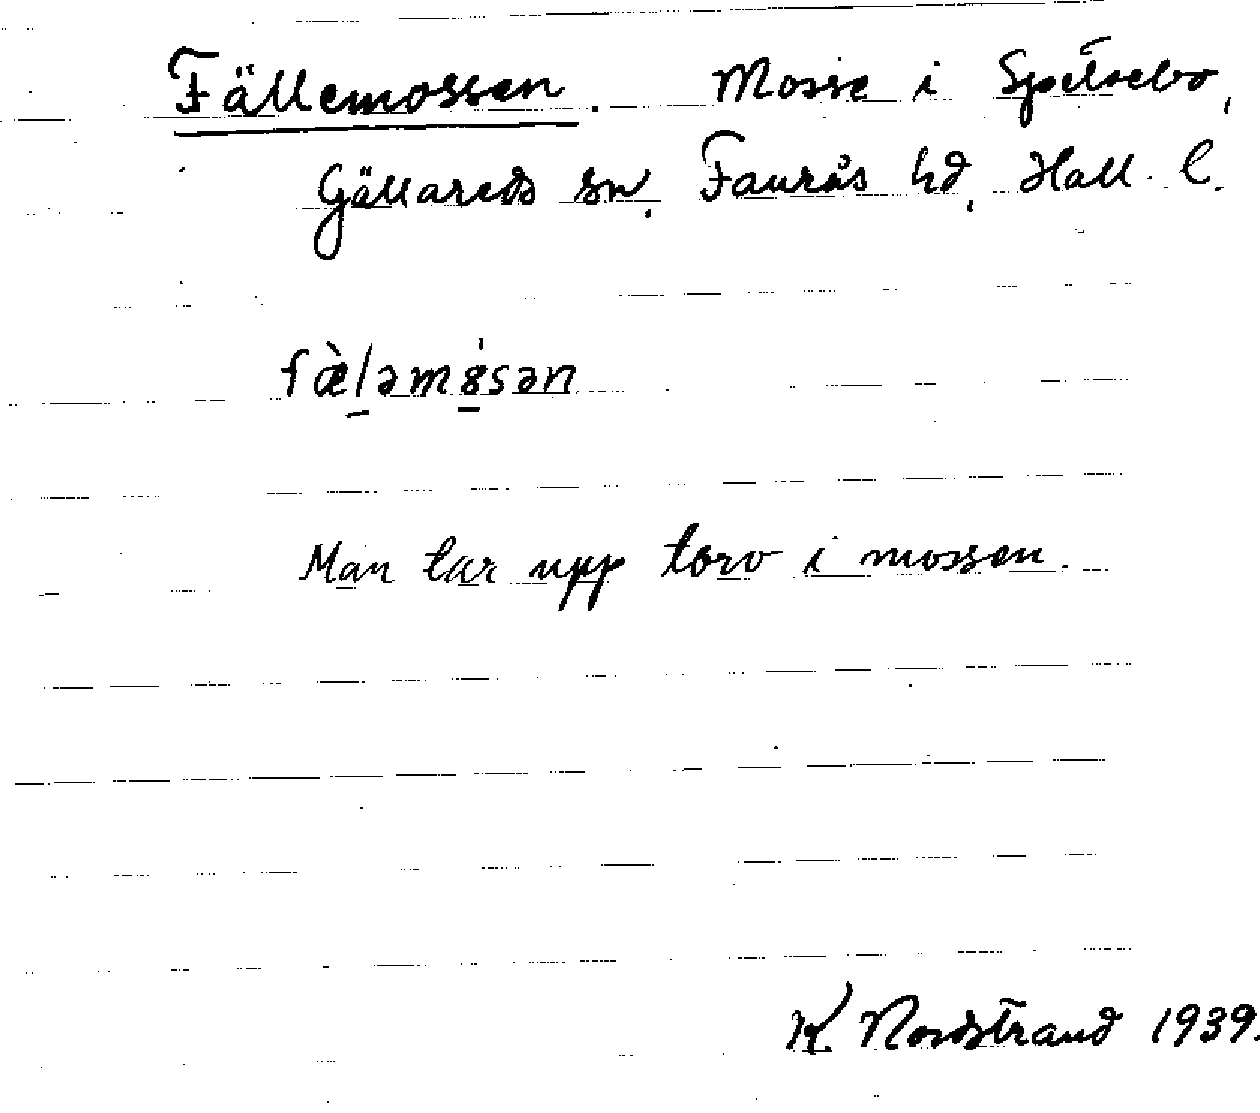 Fällemossen. Mosse i Spelsebo,
Gällareds sn, Faurås hd, Hall. l.
fæ̀ləmȣ́sən
Man tar upp torv i mossen.
K Nordstrand 1939.